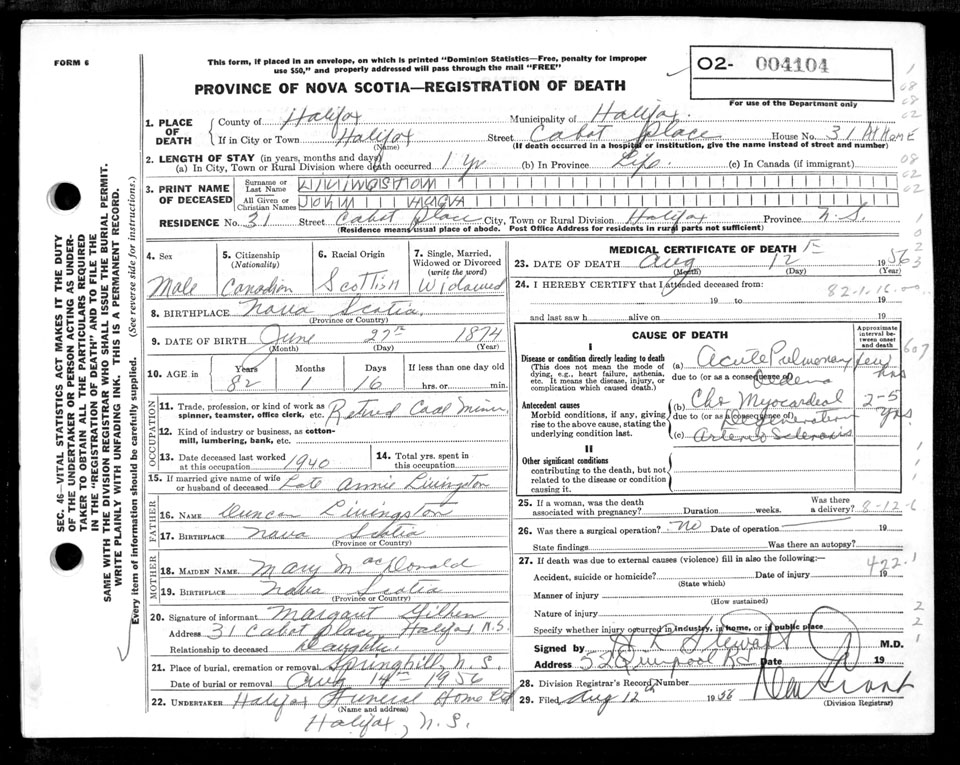 FORM 6
This form, if placed in an envelope, on which is printed "Dominion Statistics—Free, penalty for improper
use $50," and properly addressed will pass through the mail "FREE"
O2- 004104
For use of the Department only
PROVINCE OF NOVA SCOTIA—REGISTRATION OF DEATH
1. PLACE OF DEATH
County of Halifax Municipality of Halifax.
If in City or Town Halifax Street Cabot Place House No. 31 At Home
(Name) (If death occurred in a hospital or institution, give the name instead of street and number)
2. LENGTH OF STAY (in years, months and days)
(a) In City, Town or Rural Division where death occurred 1 yr (b) In Province Life. (c) In Canada (if immigrant)
3. PRINT NAME OF DECEASED
Surname or Last Name LIVINGSTON
All Given or Christian Names JOHN
RESIDENCE No. 31 Street Cabot Place City, Town or Rural Division Halifax Province N.S.
(Residence means usual place of abode. Post Office Address for residents in rural parts not sufficient)
4. Sex Male
5. Citizenship (Nationality) Canadian
6. Racial Origin Scottish
7. Single, Married, Widowed or Divorced (write the word) Widowed
8. BIRTHPLACE Nova Scotia.
(Province or Country)
9. DATE OF BIRTH June 27th 1874
(Month) (Day) (Year)
10. AGE Years 82 Months 1 Days 16 If less than one day old hrs. or min.
OCCUPATION
11. Trade, profession or kind of work as spinner, teamster, office clerk, etc. Retired Coal Miner
12. Kind of industry or business, as cotton-mill, lumbering, bank, etc.
13. Date deceased last worked at this occupation 1940
14. Total yrs. spent in this occupation
15. If married give name of wife or husband of deceased Late Annie Livingston
FATHER
16. NAME Duncan Livingston
17. BIRTHPLACE Nova Scotia
(Province or Country)
MOTHER
18. MAIDEN NAME Mary MacDonald
19. BIRTHPLACE Nova Scotia
(Province or Country)
20. Signature of informant Margaret
Address 31 Cabot Place, Halifax N.S.
Relationship to deceased Daughter.
21. Place of burial, cremation or removal Springhill, N.S.
Date of burial or removal Aug 14th 1956
22. UNDERTAKER Halifax Funeral Home Ltd
(Name and address)
Halifax, N.S.
MEDICAL CERTIFICATE OF DEATH
23. DATE OF DEATH Aug 12 1956
(Month) (Day) (Year)
24. I HEREBY CERTIFY that I attended deceased from:
19 to 19
and last saw h alive on 19
82-1-16-00
CAUSE OF DEATH
Approximate interval between onset and death
I
Disease or condition directly leading to death
(This does not mean the mode of dying, e.g., heart failure, asthenia, etc. It means the disease, injury, or complication which caused death.)
(a) Acute Pulmonary Edema few hrs
due to (or as a consequence of)
Antecedent causes
Morbid conditions, if any, giving rise to the above cause, stating the underlying condition last.
(b) Chr Myocardial Degeneration 2-5 yrs
due to (or as a consequence of)
(c) Arterio Sclerosis
II
Other significant conditions
contributing to the death, but not related to the disease or condition causing it.
25. If a woman, was the death associated with pregnancy? Duration weeks. Was there a delivery?
26. Was there a surgical operation? No Date of operation 19
State findings Was there an autopsy?
27. If death was due to external causes (violence) fill in also the following:—
Accident, suicide or homicide? Date of injury 19
(State which)
422.1
Manner of injury
(How sustained)
Nature of injury
Specify whether injury occurred in industry, in home, or in public place
Signed by Stewart M.D.
Address 52 Quinpool Rd Date 19
28. Division Registrar's Record Number
29. Filed Aug 12th 1956
(Division Registrar)
SEC. 46—VITAL STATISTICS ACT MAKES IT THE DUTY
OF THE UNDERTAKER OR PERSON ACTING AS UNDERTAKER TO OBTAIN ALL THE PARTICULARS REQUIRED
IN THE "REGISTRATION OF DEATH" AND TO FILE THE
SAME WITH THE DIVISION REGISTRAR WHO SHALL ISSUE THE BURIAL PERMIT.
WRITE PLAINLY WITH UNFADING INK. THIS IS A PERMANENT RECORD.
Every item of information should be carefully supplied. (See reverse side for instructions.)